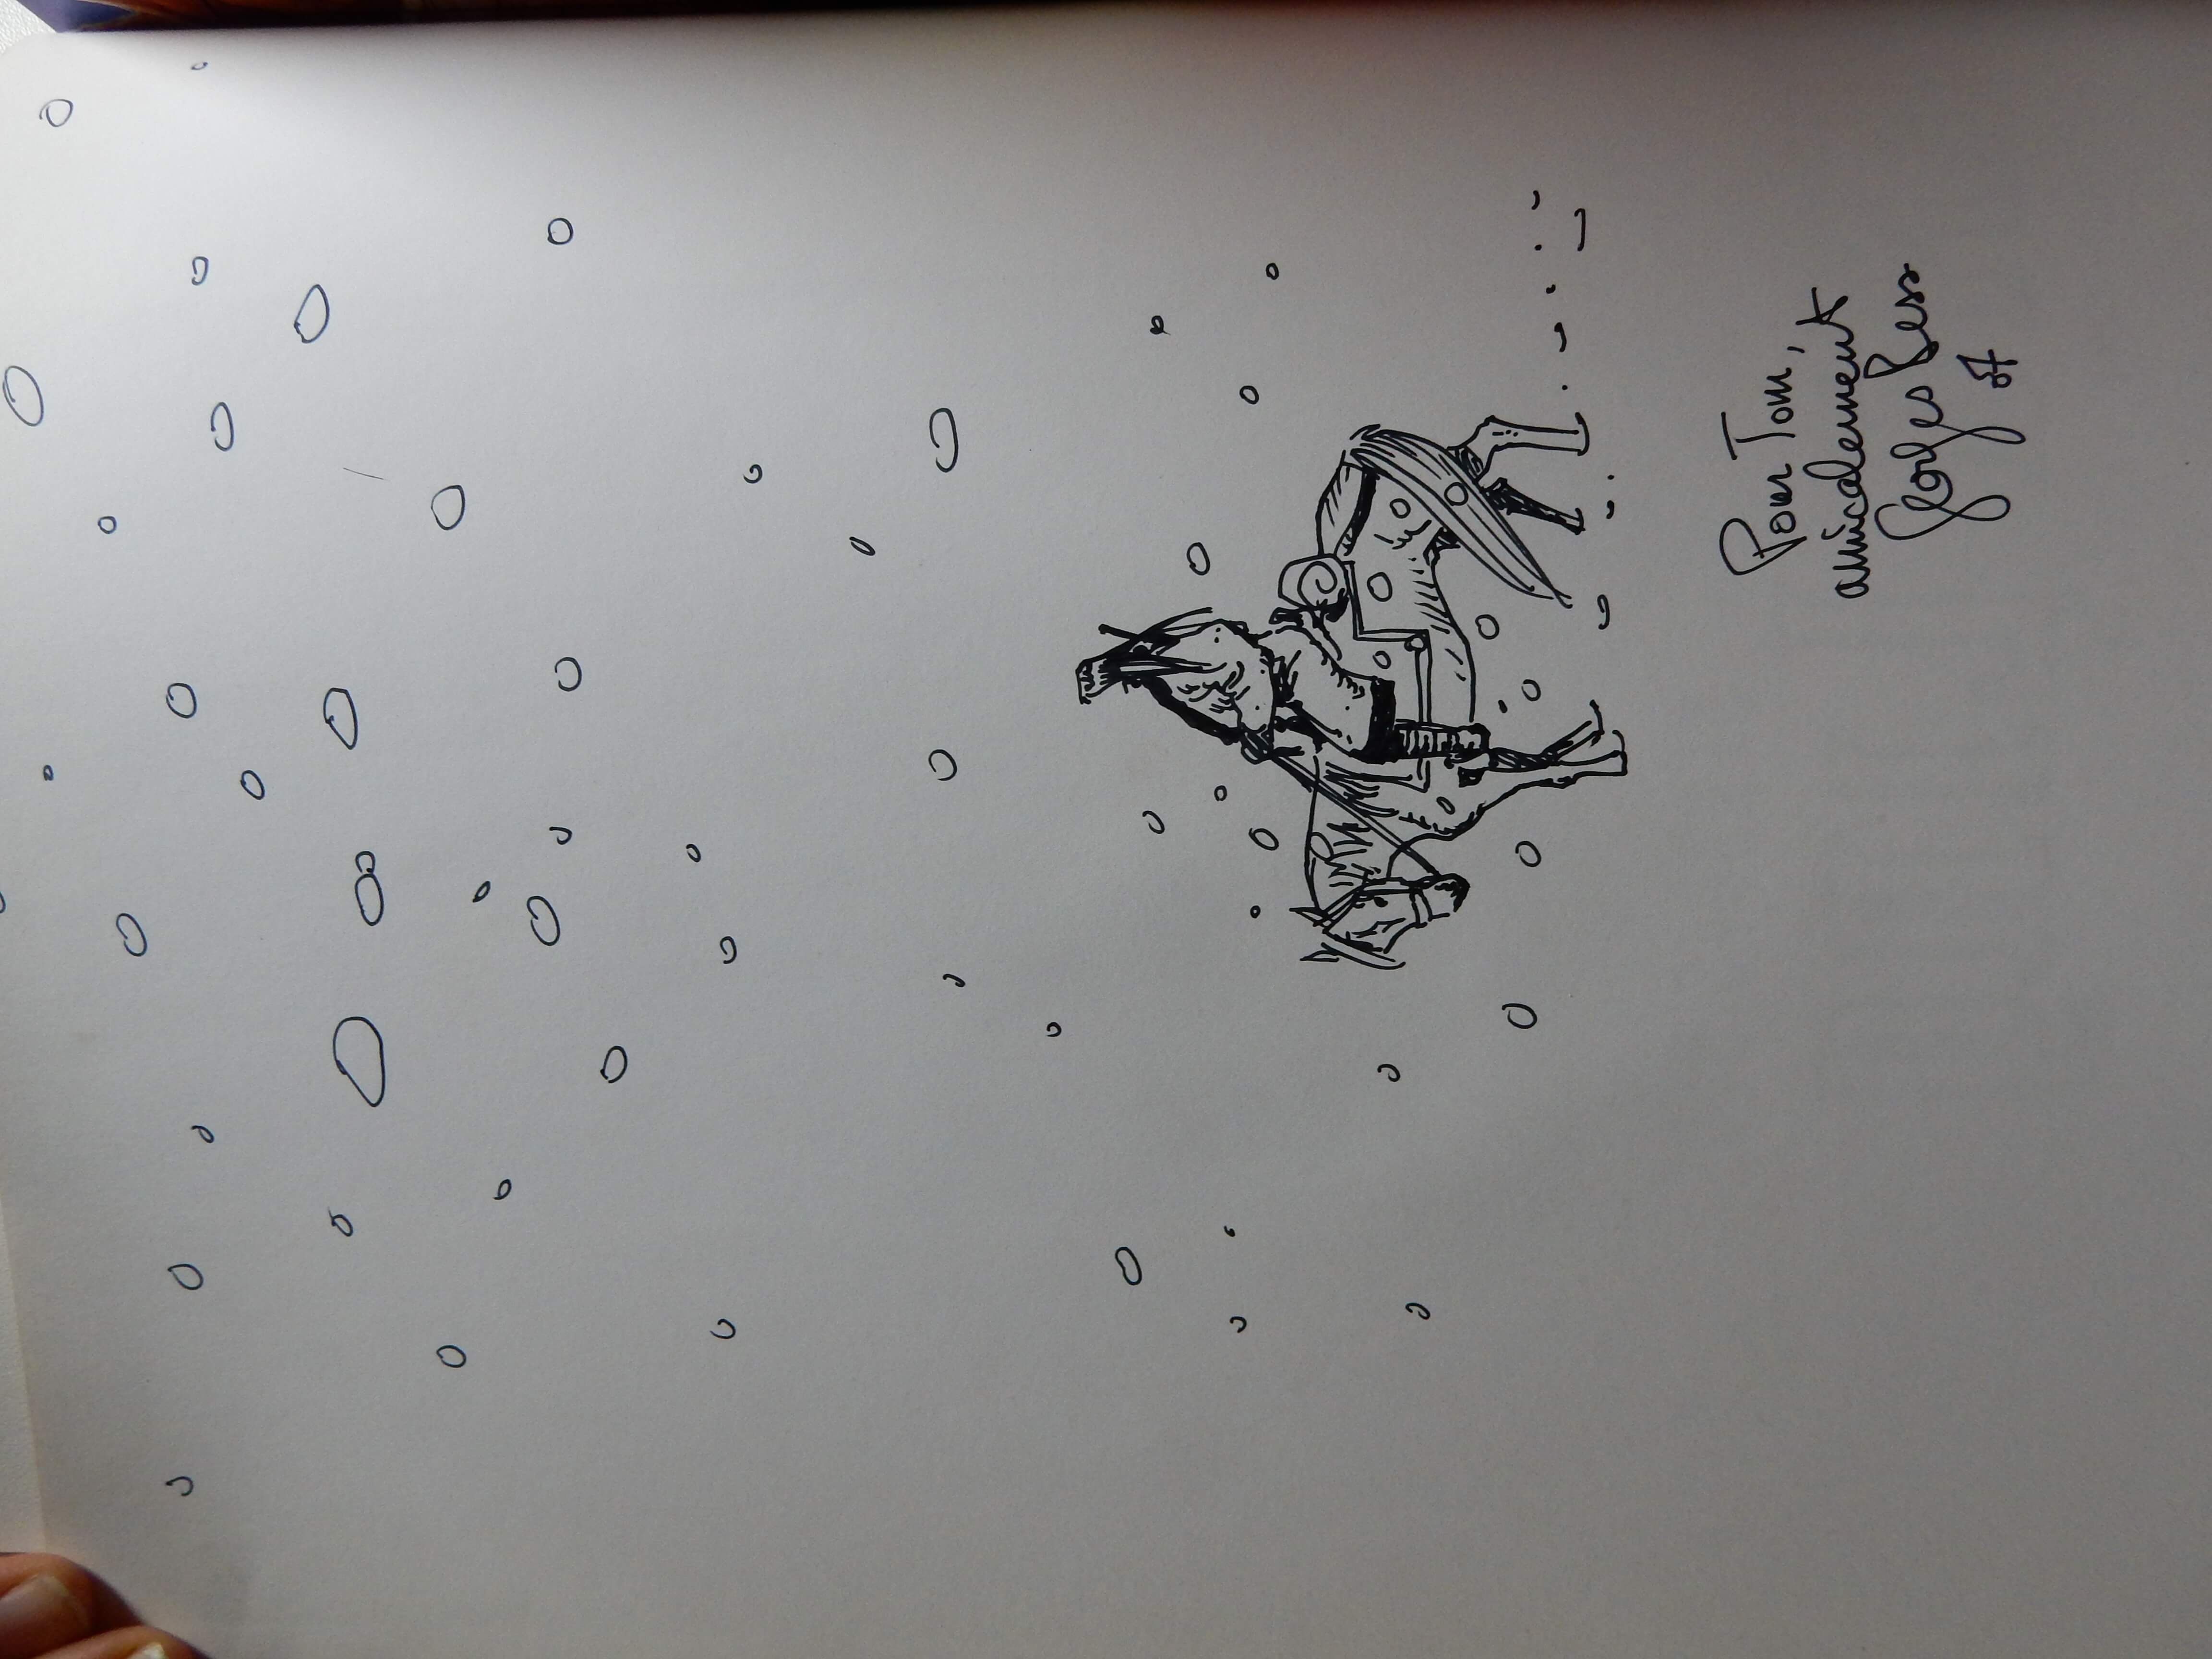 Pour Tom,
amicalement
Georges Bess
07